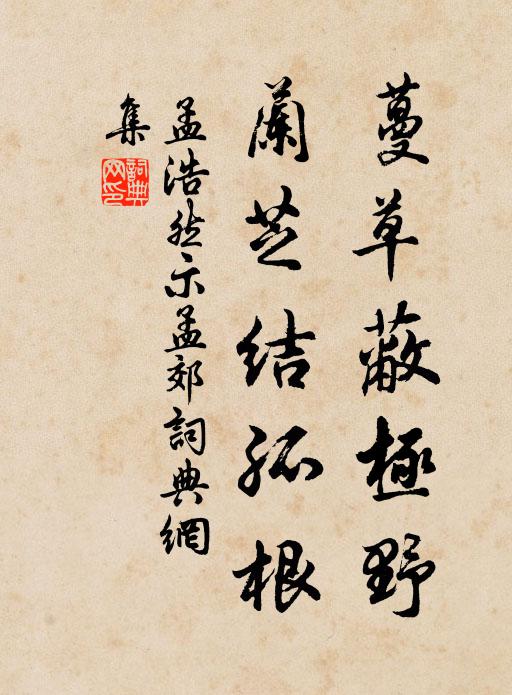 蔓草蔽極野
蘭芝結孤根
孟浩然示孟郊詞典網
集
詞典
网印